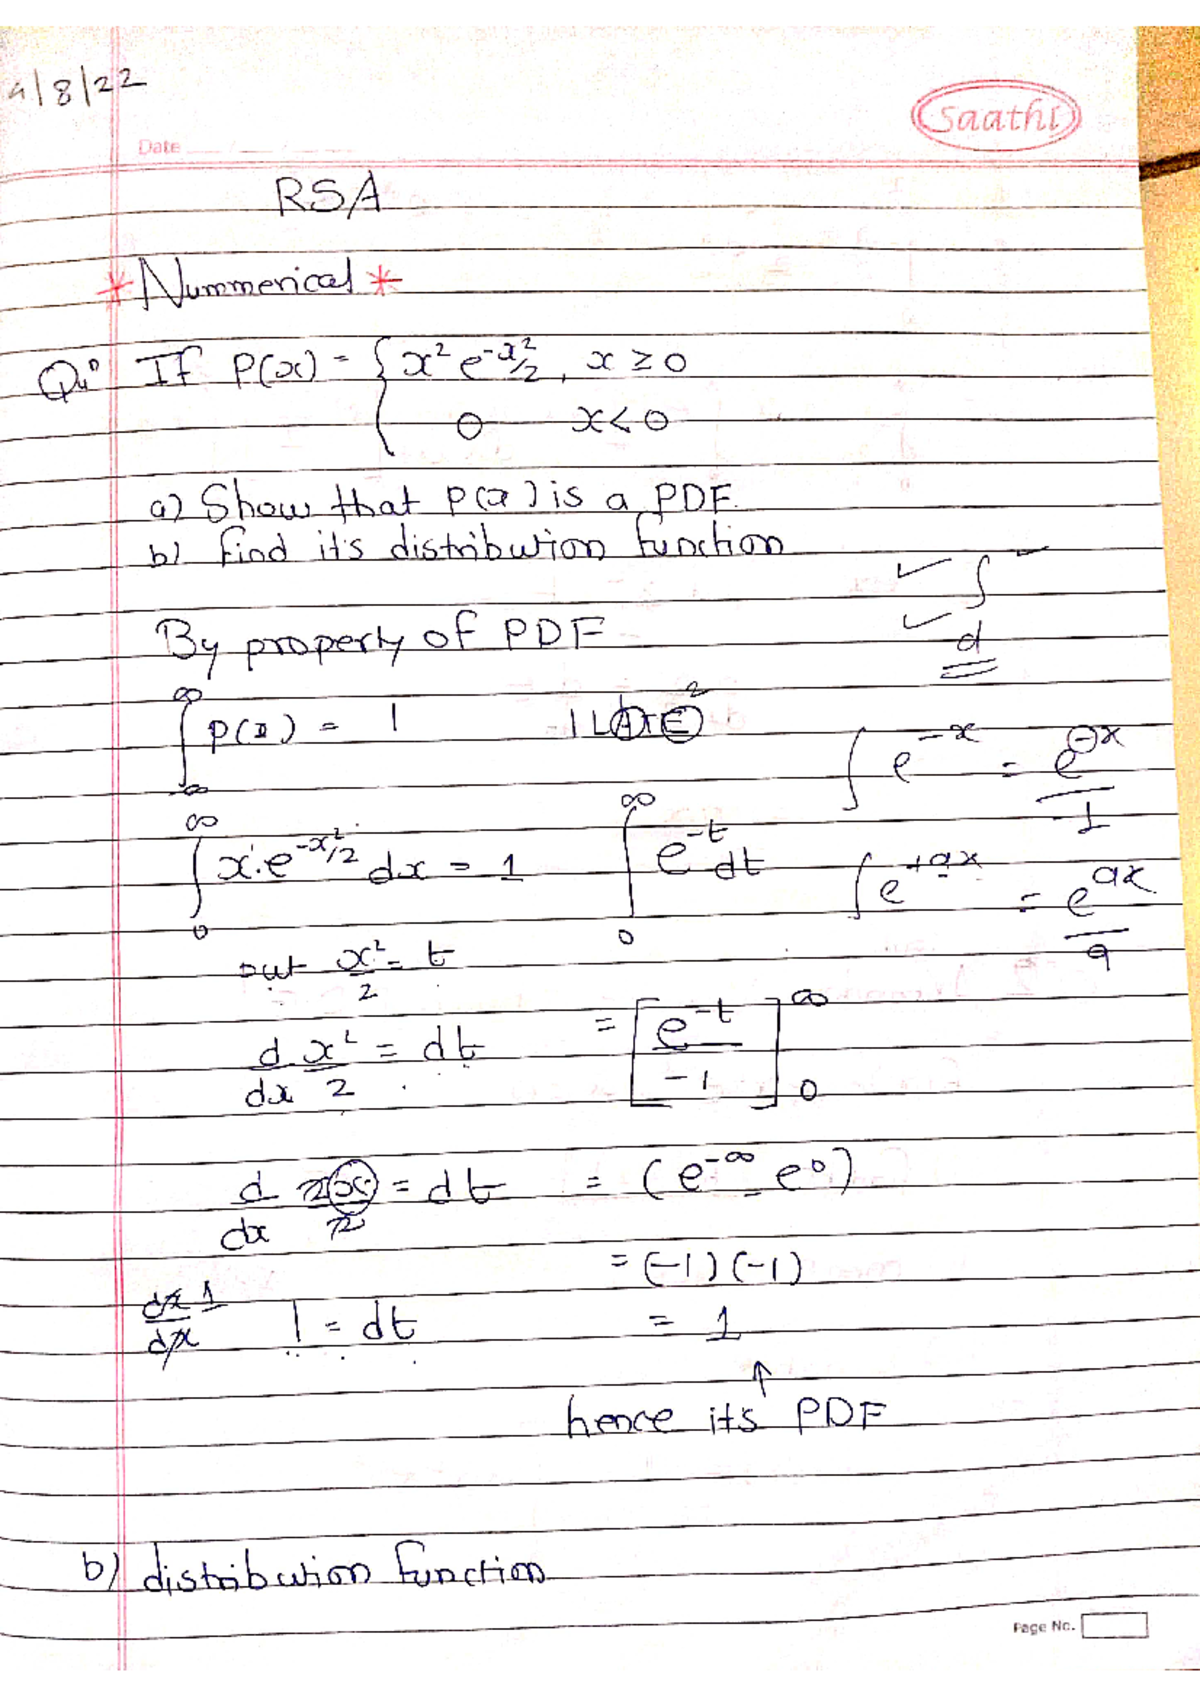 4/8/22
Saathi
Date
RSA
* Nummerical *
Qu^n If P(x) = { x² e^(-x²/2), x ≥ 0
0 x < 0
a) Show that P(x) is a PDF.
b) find it's distribution function
✓ ∫ ✓
✓ d
By property of PDF
∫_{-∞}^{∞} P(x) = 1
ILATE²
∫ e^(-x) = e^(-x) / -1
∫_0^∞ x.e^(-x²/2) dx = 1
∫_0^∞ e^(-t) dt
∫ e^(+ax) = e^(ax) / a
put x²/2 = t
d/dx x²/2 = dt
= [e^(-t) / -1]_0^∞
d/dx 2x/2 = dt
= (e^(-∞) - e^0)
= (-1)(-1)
dx/dx 1
1 = dt
= 1
↑
hence it's PDF
b) distribution function
Page No.